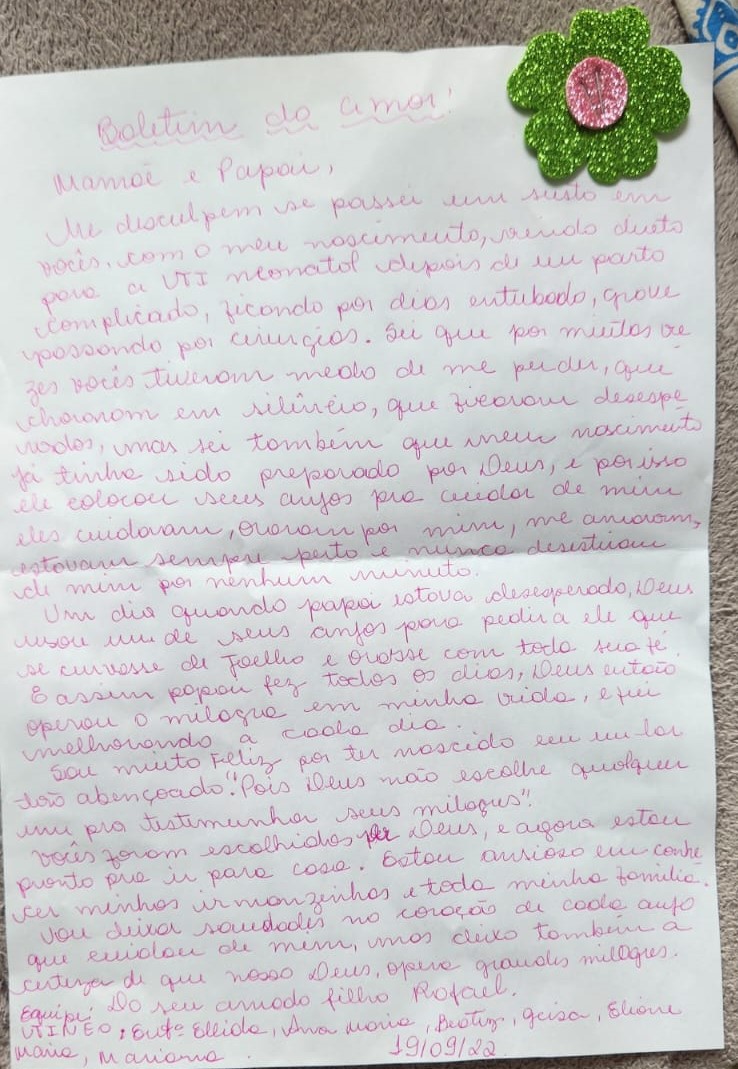 Boletim do amor!
Mamãe e Papai,
Me disculpem se passei um susto em
vocês, com o meu nascimento, vindo direto
para a UTI neonatal depois de um parto
complicado, ficando por dias entubado, grave
passando por cirurgias. Sei que por muitas ve
zes vocês tiveram medo de me perder, que
choraram em silêncio, que ficaram desespe
rados, mas sei também que meu nascimento
já tinha sido preparado por Deus, e por isso
ele colocou seus anjos pra cuidar de mim
eles cuidavam, oravam por mim, me amavam,
estavam sempre perto e nunca desistiram
de mim por nenhum minuto.
Um dia quando papai estava desesperado, Deus
usou um de seus anjos para pedir a ele que
se curvasse de Joelho e orasse com toda sua fé.
E assim papai fez todos os dias, Deus então
operou o milagre em minha vida, e fui
melhorando a cada dia.
Sou muito Feliz por ter nascido em um lar
tão abençoado. "Pois Deus não escolhe qualquer
um pra testimunhar seus milagres".
Vocês foram escolhidos por Deus, e agora estou
pronto pra ir para casa. Estou ansioso em conhe
cer minhas irmanzinhas e toda minha família.
Vou deixar saudades no coração de cada anjo
que cuidou de mim, mas deixo também a
certeza de que nosso Deus, opera grandes milagres.
Do seu amado filho Rafael.
Equipe:
UTINEO: Enfª Ellida, Ana Maria, Beatriz, Geisa, Eliane
Maria, Mariana.
19/09/22